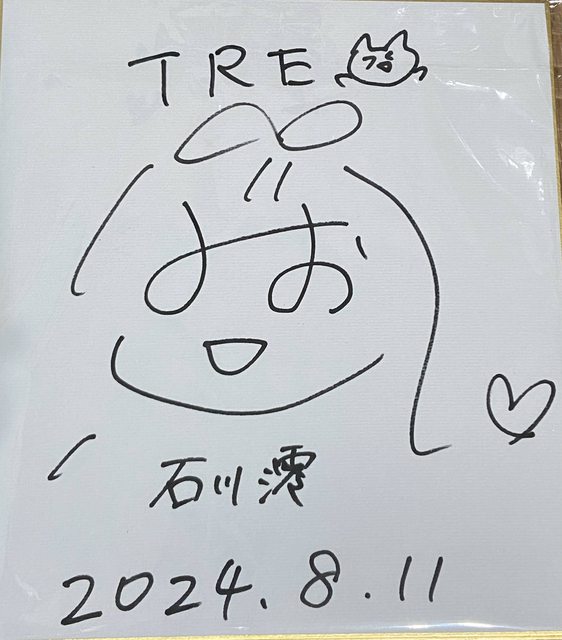 TRE
みお
石川澪
2024.8.11